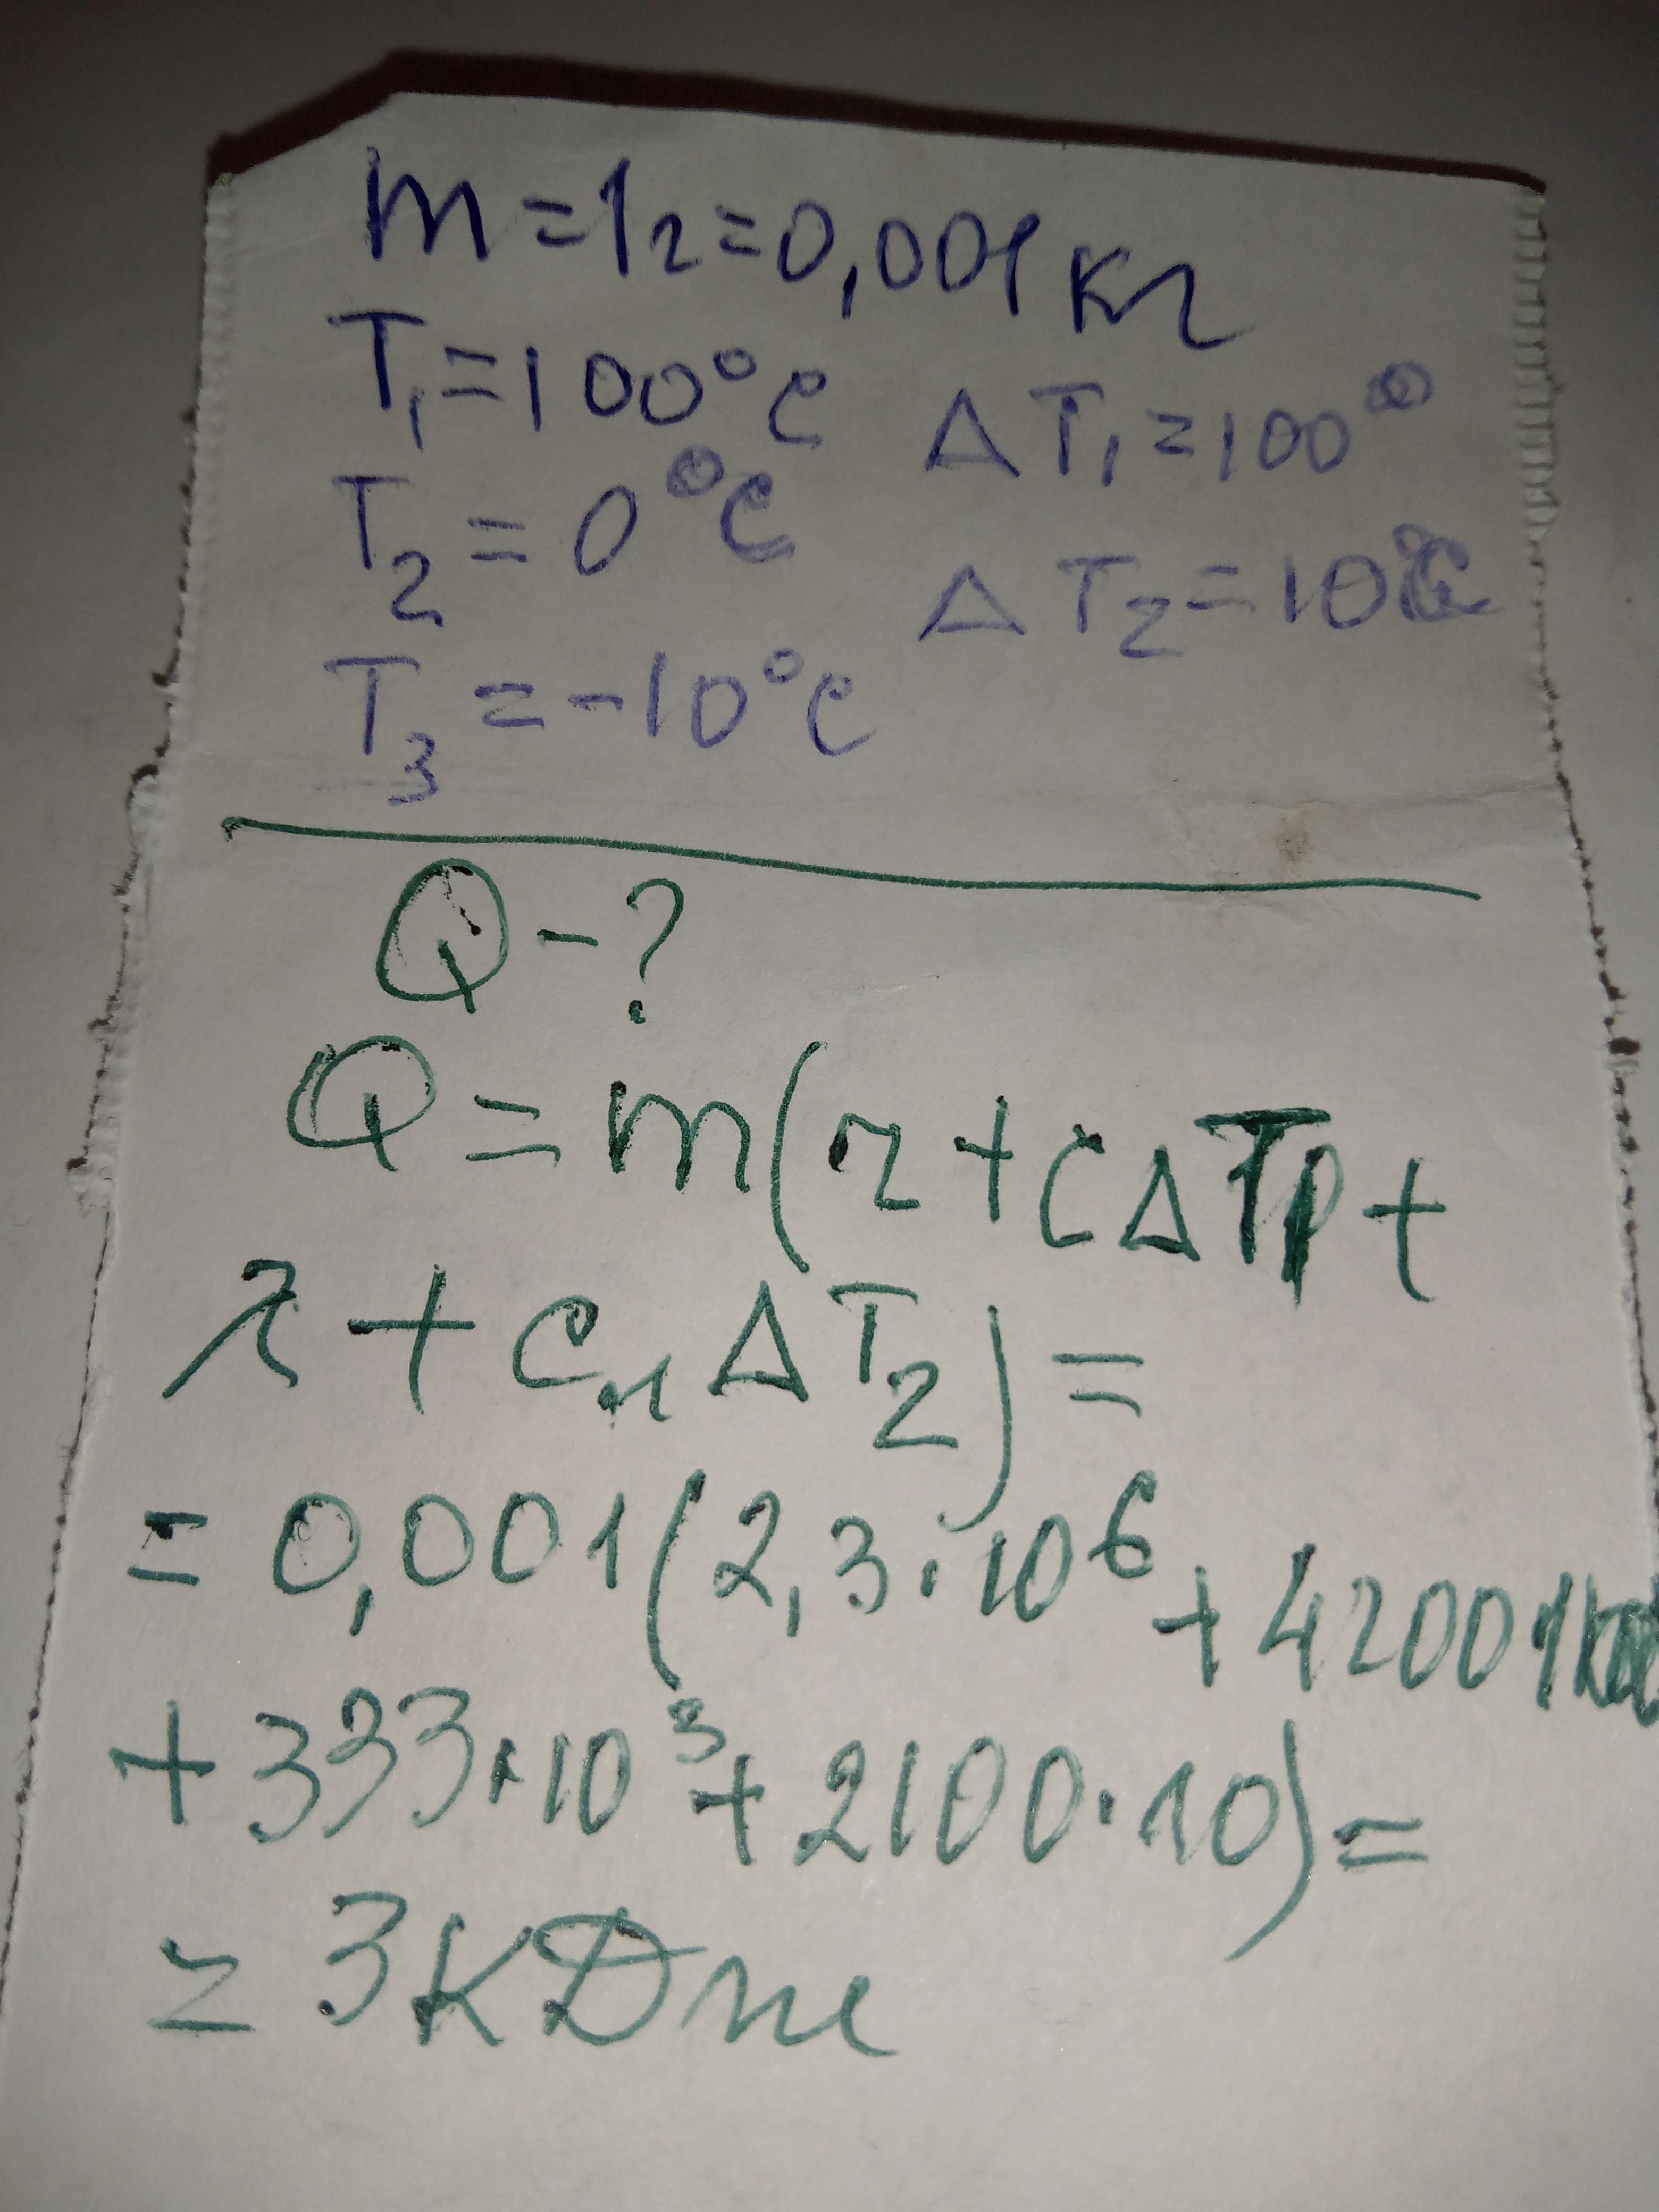 m = 1г = 0,001 кг
T₁ = 100°C ΔT₁ = 100°
T₂ = 0°C ΔT₂ = 10°C
T₃ = -10°C
Q - ?
Q = m(r + cΔT₁ +
λ + cлΔT₂) =
= 0,001(2,3·10⁶ + 4200
+ 333·10³ + 2100·10) =
= 3 кДж